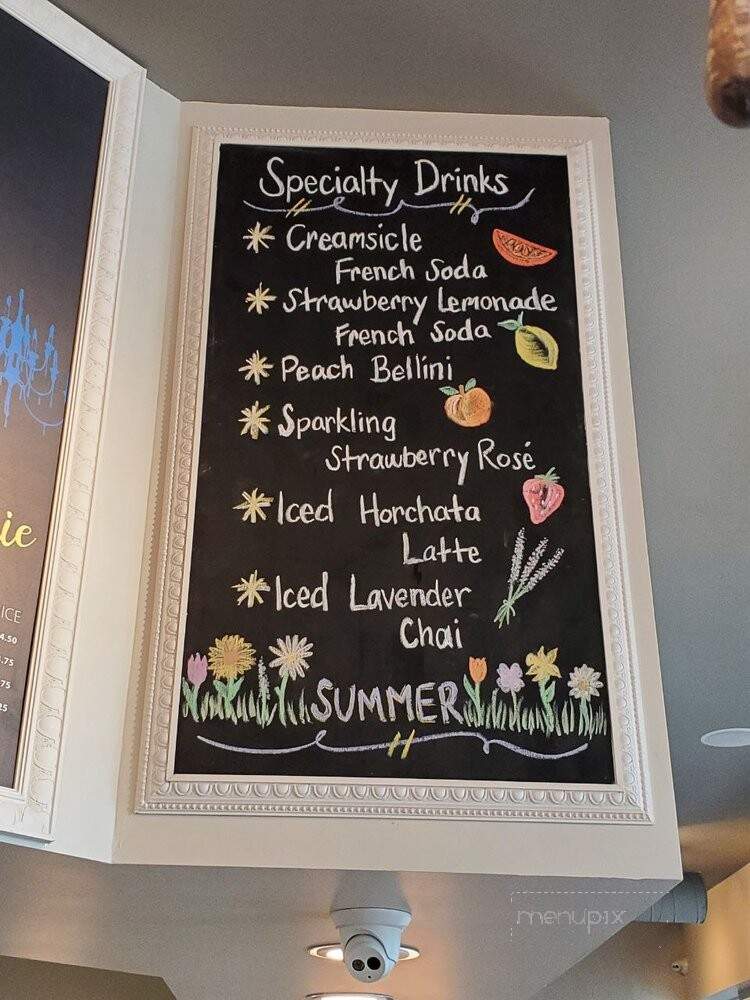 Specialty Drinks
Creamsicle
French Soda
Strawberry Lemonade
French Soda
Peach Bellini
Sparkling
Strawberry Rosé
Iced Horchata
Latte
Iced Lavender
Chai
SUMMER
menupix